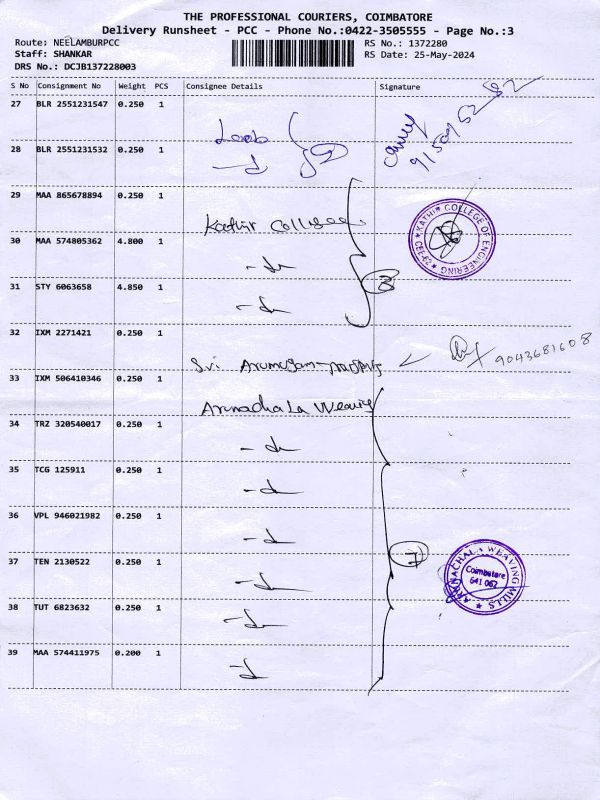 THE PROFESSIONAL COURIERS, COIMBATORE
Delivery Runsheet - PCC - Phone No.:0422-3505555 - Page No.:3
Route: NEELAMBURPCC
RS No.: 1372280
Staff: SHANKAR
RS Date: 25-May-2024
DRS No.: DCJB137228003
S No Consignment No Weight PCS Consignee Details Signature
27 BLR 2551231547 0.250 1
28 BLR 2551231532 0.250 1
29 MAA 865678894 0.250 1 Kathir College
30 MAA 574805362 4.800 1
31 STY 6063658 4.850 1
KATHIR COLLEGE OF ENGINEERING
32 IXM 2271421 0.250 1 Sri 9043681608
33 IXM 506410346 0.250 1 Arunachala Weaving
34 TRZ 320540017 0.250 1
35 TCG 125911 0.250 1
36 VPL 946021982 0.250 1
37 TEN 2130522 0.250 1
ARUNACHALA WEAVING MILLS
Coimbatore
641 062
38 TUT 6823632 0.250 1
39 MAA 574411975 0.200 1